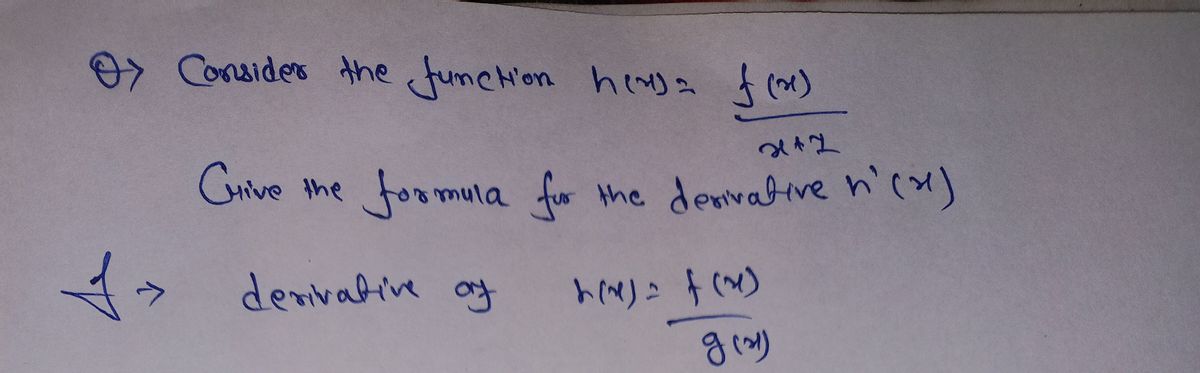 Q> Consider the function h(x) = f(x)
x+1
Give the formula for the derivative h'(x)
→ derivative of h(x) = f(x)
g(x)